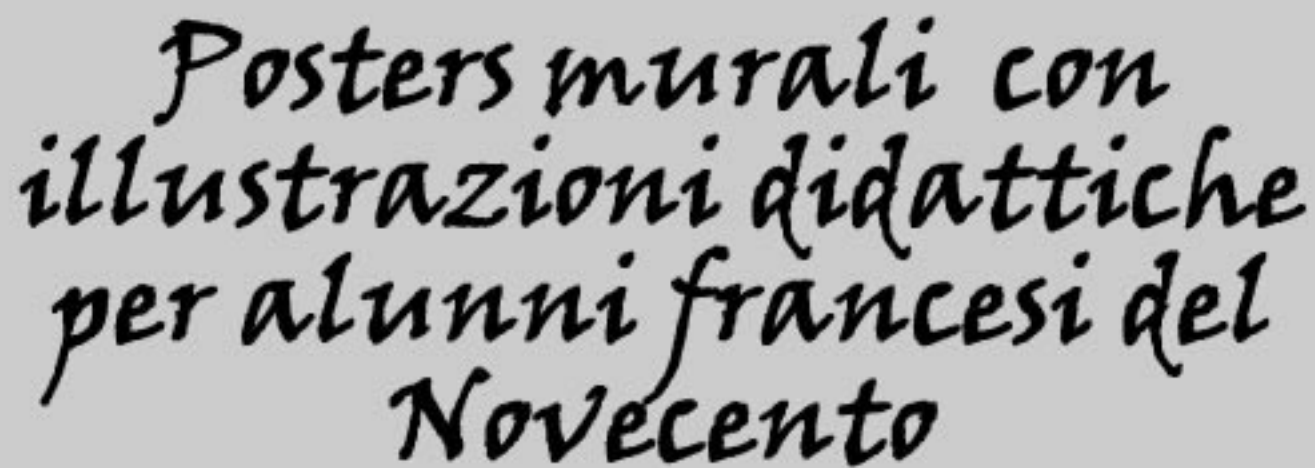 Posters murali con
illustrazioni didattiche
per alunni francesi del
Novecento